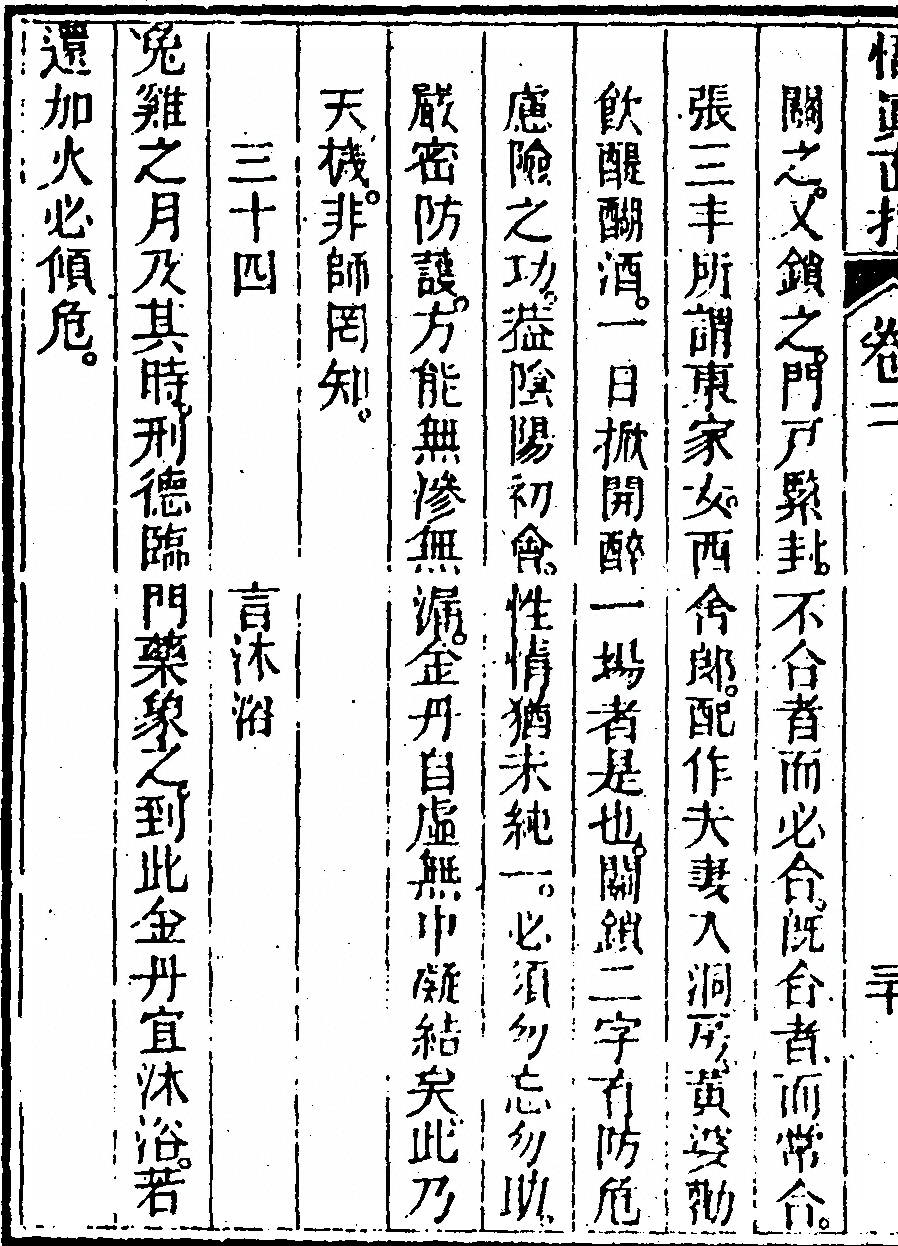 悟真直指 卷二 三十
關之。又鎖之。門戶緊封。不合者而必合。旣合者。而常合。
張三丰所謂東家女。西舍郎。配作夫妻入洞房。黃婆勸
飲醍醐酒。一日掀開醉一場者是也。關鎖二字有防危
慮險之功。蓋陰陽初會。性情猶未純一。必須勿忘勿助。
嚴密防護。方能無滲無漏。金丹自虛無中凝結矣。此乃
天機。非師罔知。
三十四 言沐浴
兔雞之月及其時。刑德臨門藥象之。到此金丹宜沐浴。若
還加火必傾危。